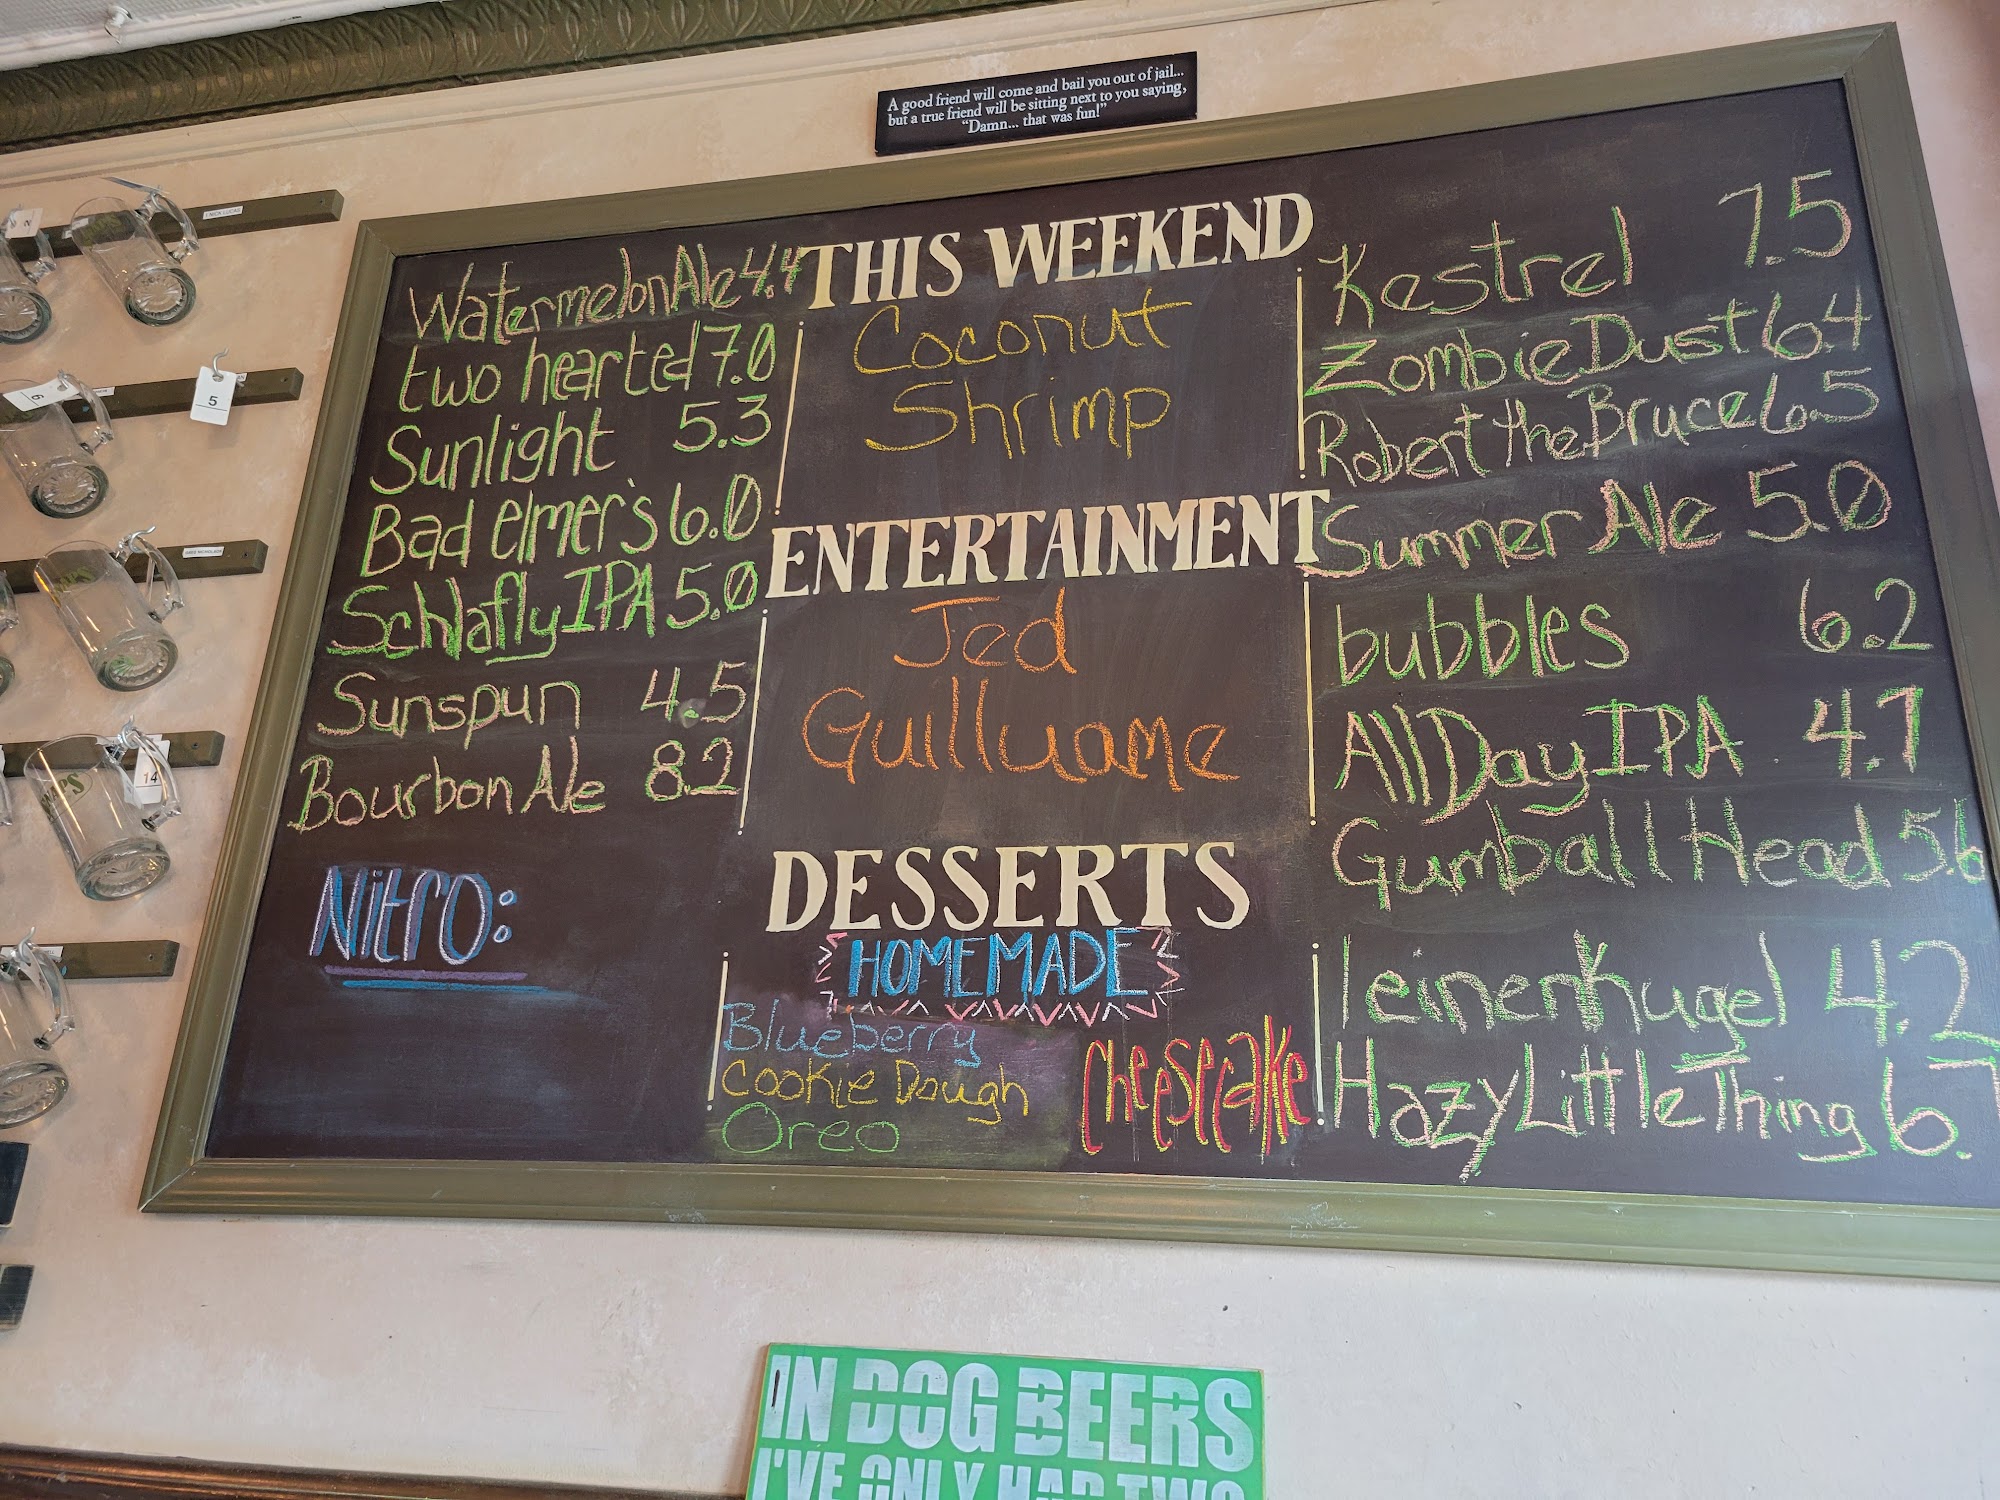 A good friend will come and bail you out of jail...
but a true friend will be sitting next to you saying,
"Damn... that was fun!"
Watermelon Ale 4.4
two hearted 7.0
Sunlight 5.3
Bad elmer's 6.0
Schlafly IPA 5.0
Sunspun 4.5
Bourbon Ale 8.2
Nitro:
THIS WEEKEND
Coconut
Shrimp
ENTERTAINMENT
Jed
Guilluame
DESSERTS
HOMEMADE
Blueberry
Cookie Dough
Oreo
Cheesecake
Kestrel 7.5
Zombie Dust 6.4
Robert the Bruce 6.5
Summer Ale 5.0
bubbles 6.2
All Day IPA 4.7
Gumball Head 5.6
leinenkugel 4.2
Hazy Little Thing 6.7
2
5
6
14
IN DOG BEERS
I'VE ONLY HAD TWO